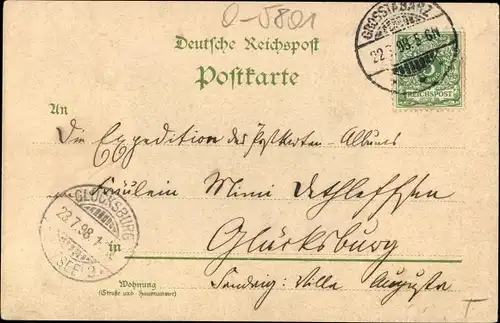 0-5801
GROSSTABARZ
22.7.98. 5-6N
Deutsche Reichspost
Postkarte
REICHSPOST
An
Die Expedition des Postkarten-Albums
Fräulein Mimi Dethleffsen
GLÜCKSBURG
23.7.98.
(OSTSEE)
in
Glücksburg
Wohnung
(Straße und Hausnummer)
Sandwig: Villa Augusta
T